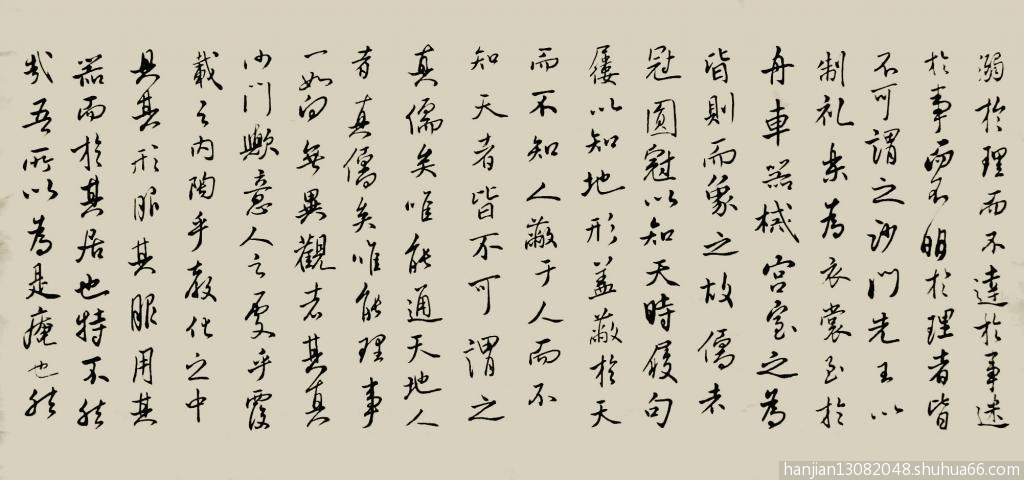 溺於理而不達於事迷
於事而不明於理者皆
不可謂之沙門先王以
制礼樂為衣裳至於
舟車器械宮室之為
皆則而象之故儒者
冠圓冠以知天時履句
屨以知地形盖蔽於天
而不知人蔽于人而不
知天者皆不可謂之
真儒矣唯能通天地人
者真儒矣唯能理事
一如向無異觀者其真
沙門歟意人之處乎覆
載之内陶乎教化之中
具其形服其服用其
器而於其居也特不然
哉吾所以為是庵也然
hanjian13082048.shuhua66.com